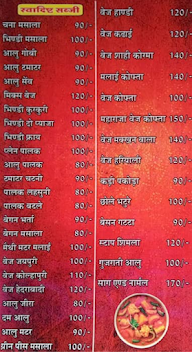 स्वादिष्ट सब्जी
चना मसाला 90/-
भिण्डी मसाला 100/-
आलू गोबी 90/-
आलू टमाटर 90/-
आलू सेंव 90/-
मिक्स वेज 120/-
भिण्डी कुरकुरी 100/-
भिण्डी दो प्याजा 100/-
भिण्डी फ्राय 100/-
प्लेन पालक 100/-
आलू पालक 80/-
टमाटर चटनी 90/-
पालक लहसुनी 80/-
पालक बटले 80/-
बेंगन भर्ता 90/-
बेंगन मसाला 80/-
मेथी मटर मलाई 100/-
वेज जयपुरी 100/-
वेज कोल्हापुरी 110/-
वेज हैदराबादी 120/-
आलू जीरा 80/-
दम आलू 100/-
आलू मटर 90/-
ग्रीन पीस मसाला 100/-
वेज हाण्डी 120/-
वेज कढ़ाई 120/-
वेज शाही कोरमा 140/-
मलाई कोफ्ता 140/-
वेज कोफ्ता 100/-
महाराजा वेज कोफ्ता 150/-
वेज मक्खन वाला 140/-
वेज हरियाली 120/-
कढ़ी पकोड़ा 90/-
छोले भटूरे 100/-
बेसन गट्टा 90/-
स्टाप शिमला 120/-
गुजराती आलू 100/-
साग एण्ड नार्मल 170/-